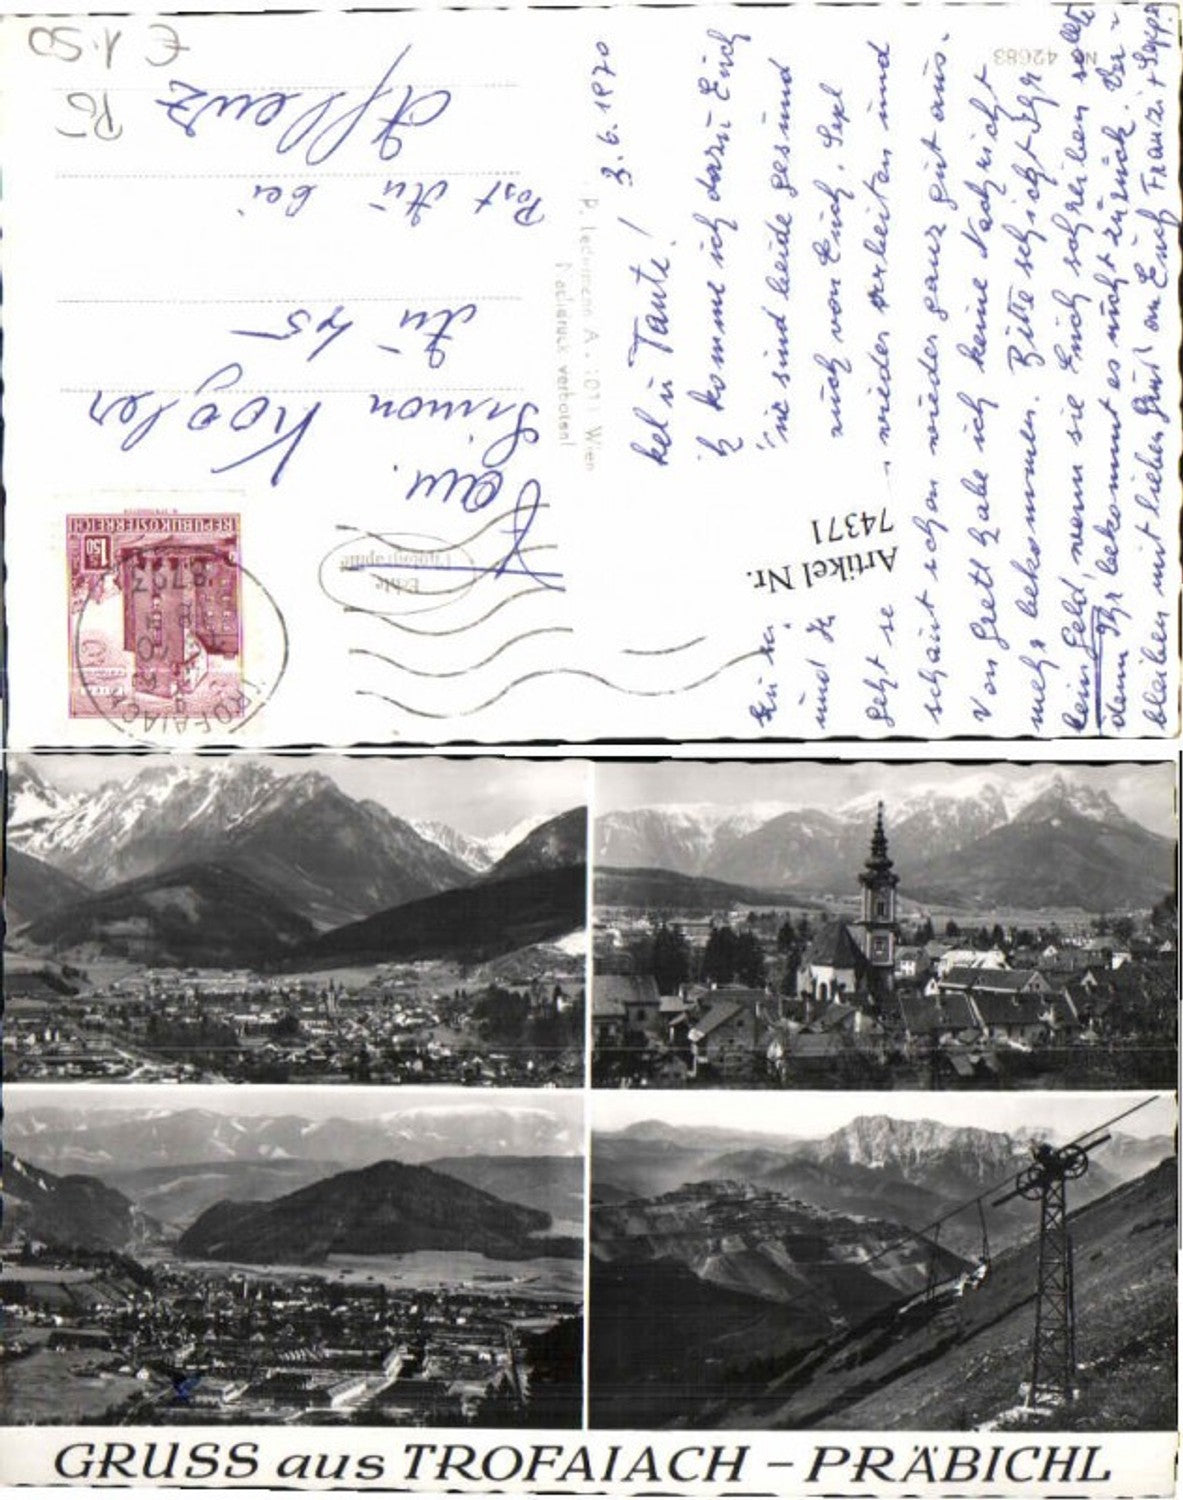 3.6.1970
Tante!
komme ich dazu Euch
sind beide gesund
und
auch von Euch. Sepl
Jetzt
wieder arbeiten und
schaut schon wieder ganz gut aus.
Von Gretl habe ich keine Nachricht
mehr bekommen. Bitte schickt Ihr
kein Geld, wenn sie Euch schreiben sollte
denn Ihr bekommt es nicht zurück. Wir
bleiben mit lieben Gruß an Euch Franzi + Sepp
Nr. 42683
Artikel Nr.
74371
P. Ledermann A - 1011 Wien
Nachdruck verboten!
Echte
Photographie
REPUBLIK ÖSTERREICH
1.50
TROFAIACH
8793
Frau
Simon Kogler
Aü 45
Post Aü bei
Aflenz
€ 1.50
GRUSS aus TROFAIACH – PRÄBICHL